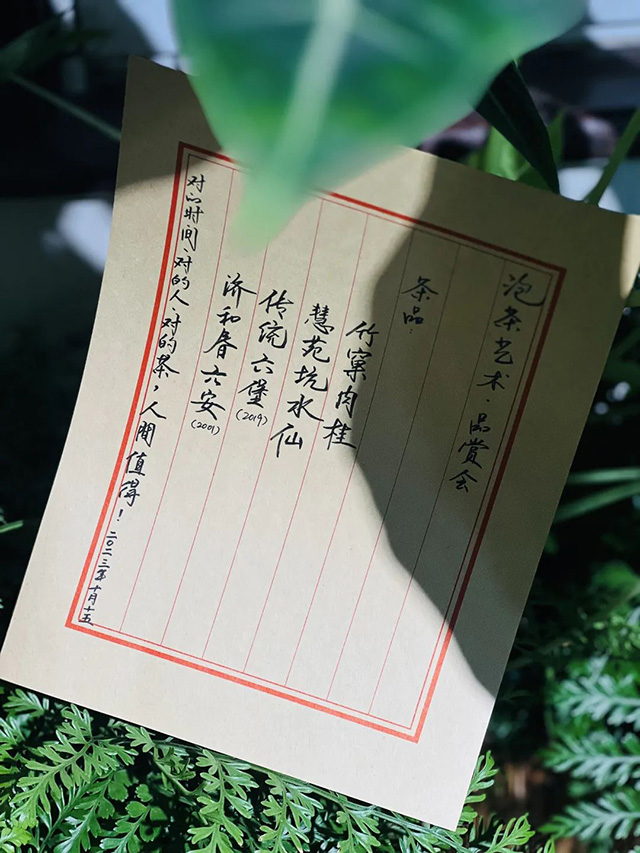 泡茶艺术·品赏会
茶品：
竹窠肉桂
慧苑坑水仙
传统六堡(2019)
济和春六安(2001)
对的时间、对的人、对的茶，人间值得！二〇二三年十月十五